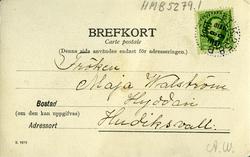 HMB5279.1
BREFKORT
Carte postale
(Denna sida användes endast för adresseringen.)
Fröken
Maja Walström
Hyddan
Bostad
(om den kan uppgifvas)
Hudiksvall.
Adressort
A.W.